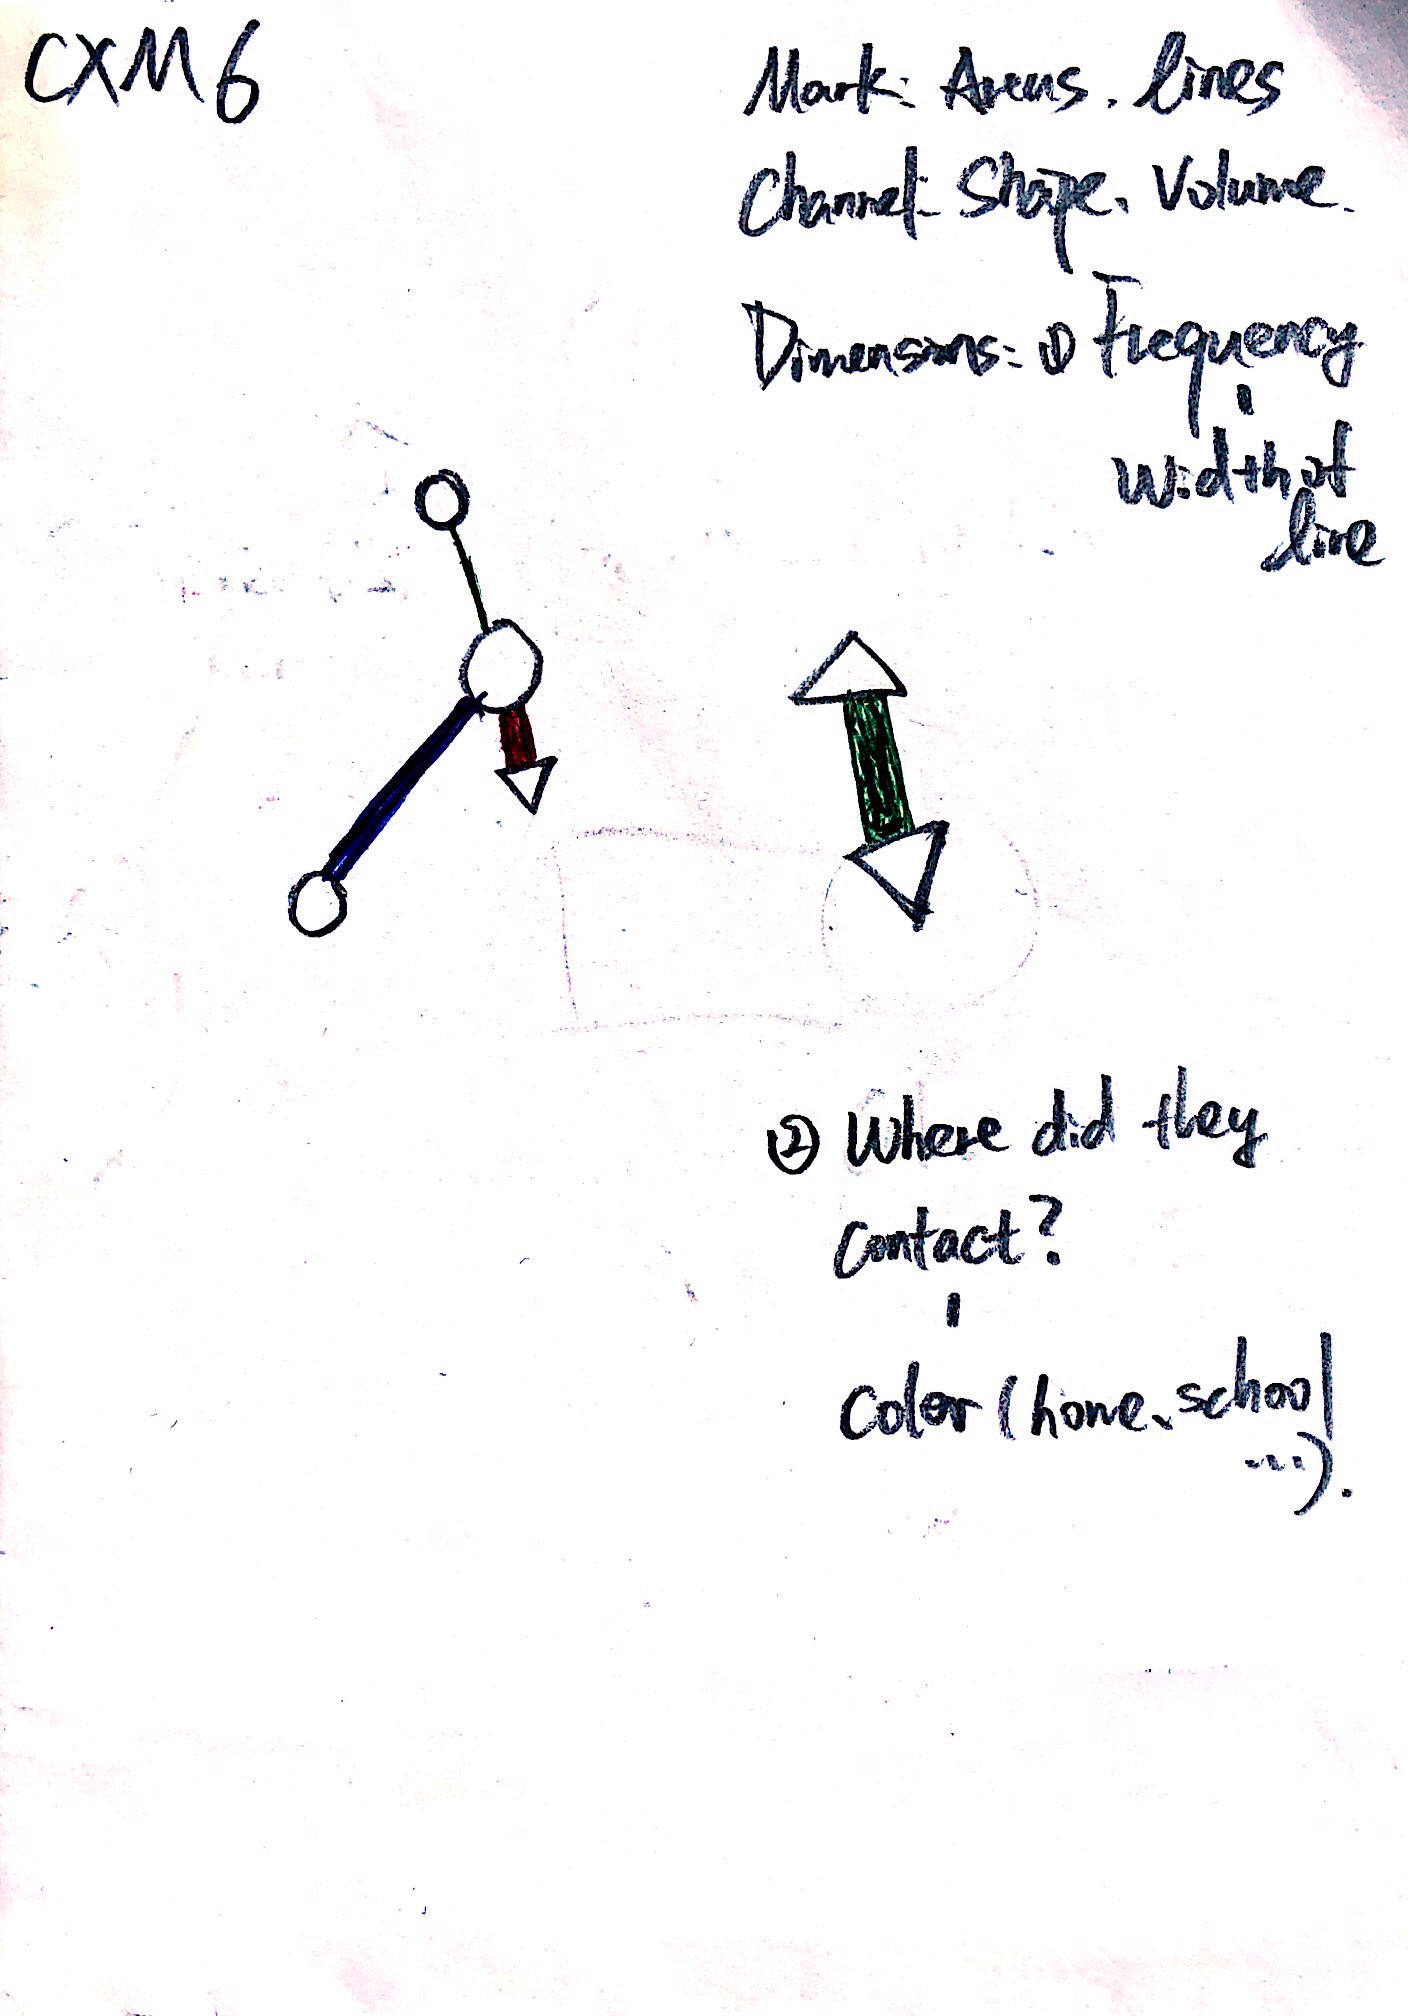 CXM6
Mark: Areas. lines
Channel: Shape. Volume.
Dimensions: ① Frequency
width of
line
② Where did they
contact?
Color (home、school
...).